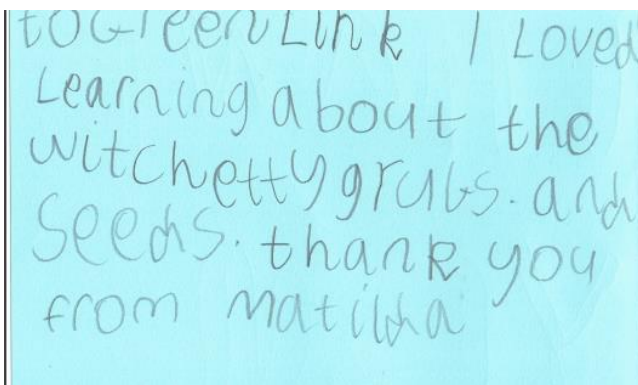 to GreenLink I Loved
Learning about the
witchetty grubs. and
Seeds. thank you
from matilda